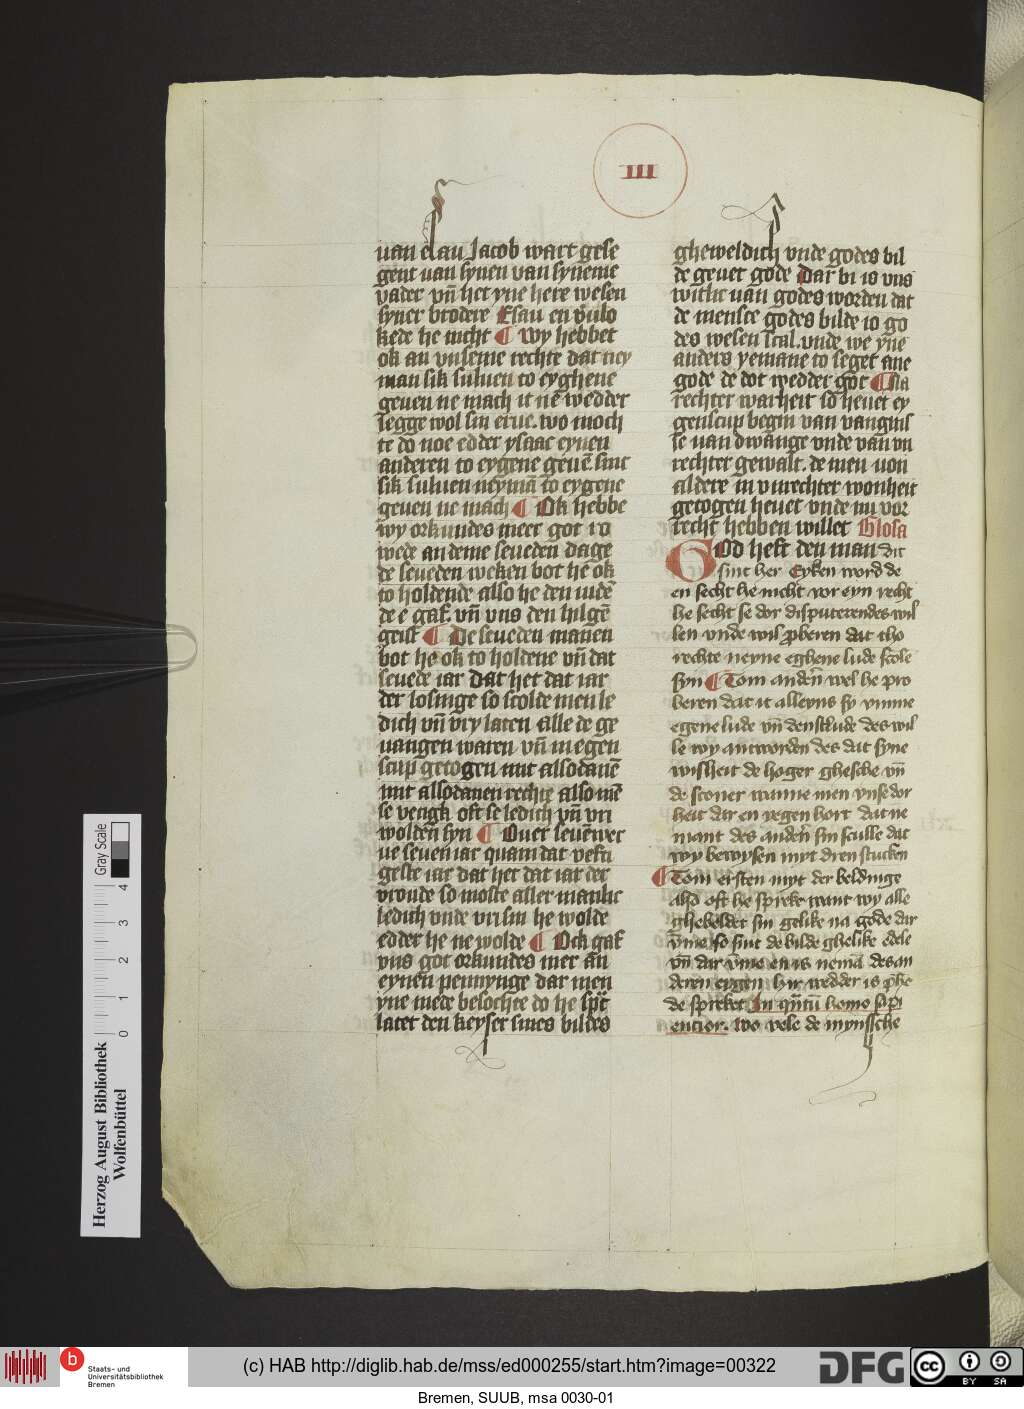 III
uan esau Jacob wart gese
gent uan synen uan syneme
vader vn̄ het yne here wesen
syner brodere Esau en vūlo
kede he nicht ¶ Wy hebbet
ok an vnseme rechte dat ney
man sik suluen to eyghene
geuen ne mach it ne wedder
segge wol sin erue. wo moch
te do noe edder ysaac eynen
anderen to eygene geuē sint
sik suluen neymā to eygene
geuen ne mach ¶ Ok hebbe
wy orkundes meer got ro
wede an deme seueden dage
de seueden weken bot he ok
to holdende also he den iudē
de e gaf. vn̄ vns den hilgē
geist ¶ De seueden manen
bot he ok to holdene vn̄ dat
seuede iar dat het dat iar
der losinge so scolde men le
dich vn̄ vry laten alle de ge
uangen waren vn̄ in egen
scup getogen mit alsodanē
mit alsodanen rechte also mē
se vengk oft se ledich vn̄ vri
wolden syn ¶ Ouer seuēwer
ue seuen iar quam dat vefti
geste iar dat het dat iar der
vroude so moste aller manlic
ledich vnde vri sin he wolde
edder he ne wolde ¶ Ock gaf
vns got orkundes mer an
eynen pennynge dar men
yne mede besochte do he sp̄c
latet den keyser sines bildes
gheweldich vnde godes bil
de geuet gode Dar bi is vns
witlic uan godes worden dat
de mensce godes bilde is go
des wesen scal. vnde we yne
anders yemane to seget ane
gode de dot wedder got ¶ Na
rechter warheit so heuet ey
genscup begin van vangnis
se uan dwange vnde van vn
rechter gewalt. de men uon
aldere in vnrechter wonheit
getogen heuet vnde nu vor
recht hebben willet Glosa
God heft den man dit
sint her Eyken word de
en secht he nicht vor eyn recht
he secht se dor disputerendes wil
len vnde wil p̄beren dat tho
rechte neyne eghene lude scole
syn ¶ Tom andern wel he pro
beren dat it alleyns sy vmme
egene lude vn̄ denstlude des wil
le wy antworden des dat syne
wisheit de hoger ghesche vn̄
de sconer wanne men vnse dor
heit dar en yegen hort dat ne
mant des andern sin sculle dat
wy bewysen myt dren stucken
¶ Tom ersten myt der beldinge
alsō oft he spreke want wy alle
ghebeldet sin gelike na gode dar
v̄me so sint de bilde ghelike edele
vn̄ dar v̄me en is nemā des an
deren eygen hir wedder is p̄he
de spreket In q̄ntū homo sapi
encior. wo vele de mynssche
Herzog August Bibliothek
Wolfenbüttel
0 1 2 3 4
Gray Scale
b
Staats- und
Universitätsbibliothek
Bremen
(c) HAB http://diglib.hab.de/mss/ed000255/start.htm?image=00322
DFG
cc
BY SA
Bremen, SUUB, msa 0030-01